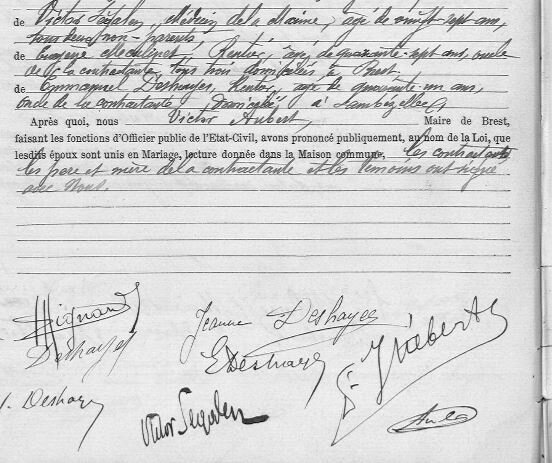 de Victor Segalen, Médecin de la Marine, âgé de vingt-sept ans,
tous deux non-parents
de Eugène Clochinet, Rentier, âgé de quarante-sept ans, oncle
de la contractante, tous trois domiciliés à Brest
de Emmanuel Deshayes, Rentier, âgé de quarante un ans,
oncle de la contractante, Domicilié à Lambézellec
Après quoi, nous Victor Aubert, Maire de Brest,
faisant les fonctions d'Officier public de l'Etat-Civil, avons prononcé publiquement, au nom de la Loi, que
lesdits époux sont unis en Mariage, lecture donnée dans la Maison commune, les contractants
les père et mère de la contractante et les témoins ont signé
avec Nous.
Mignard
Jeanne Deshayes
Deshayes
E Deshayes
Hébert
Deshayes
Victor Segalen